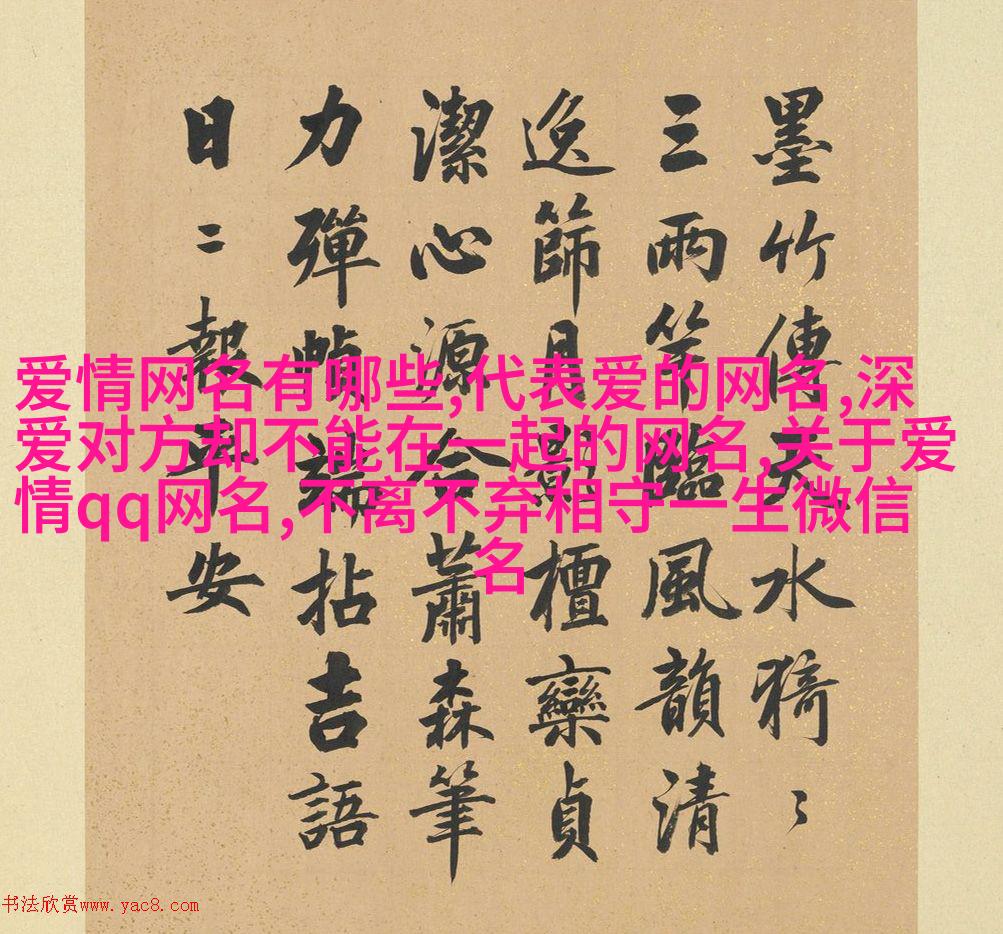 爱情网名有哪些,代表爱的网名,深
爱对方却不能在一起的网名,关于爱
情qq网名,不离不弃相守一生微信
名
墨竹傳天水猗〻
三兩竿臨風韻清
逸篩月影檀欒貞
潔心源合蕭森筆
力彈幀端拈吉語
日〻報平安
书法欣赏www.yac8.com